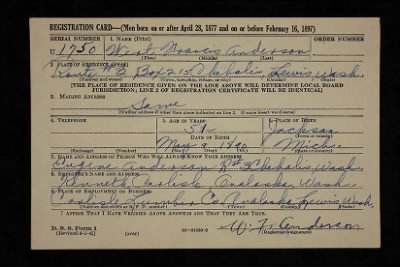 REGISTRATION CARD—(Men born on or after April 28, 1877 and on or before February 16, 1897)
SERIAL NUMBER 1. NAME (Print) ORDER NUMBER
U 1750 West Francis Anderson
(First) (Middle) (Last)
2. PLACE OF RESIDENCE (Print)
Route #3 Box 215 Chehalis Lewis Wash.
[THE PLACE OF RESIDENCE GIVEN ON THE LINE ABOVE WILL DETERMINE LOCAL BOARD
JURISDICTION; LINE 2 OF REGISTRATION CERTIFICATE WILL BE IDENTICAL]
3. MAILING ADDRESS
Same
[Mailing address if other than place indicated on line 2. If same insert word same]
4. TELEPHONE 5. AGE IN YEARS 6. PLACE OF BIRTH
51 Jackson
DATE OF BIRTH
Mar. 9 1890 Mich.
(Exchange) (Number) (Mo.) (Day) (Yr.) (State or country)
7. NAME AND ADDRESS OF PERSON WHO WILL ALWAYS KNOW YOUR ADDRESS
Anderson Rt 3 Chehalis Wash.
8. EMPLOYER'S NAME AND ADDRESS
Kenneth Carlisle Onalaska, Wash.
9. PLACE OF EMPLOYMENT OR BUSINESS
Carlisle Lumber Co. Onalaska Lewis Wash.
I AFFIRM THAT I HAVE VERIFIED ABOVE ANSWERS AND THAT THEY ARE TRUE.
D. S. S. Form 1
(Revised 4-1-42) (over) W. F. Anderson
(Registrant's signature)